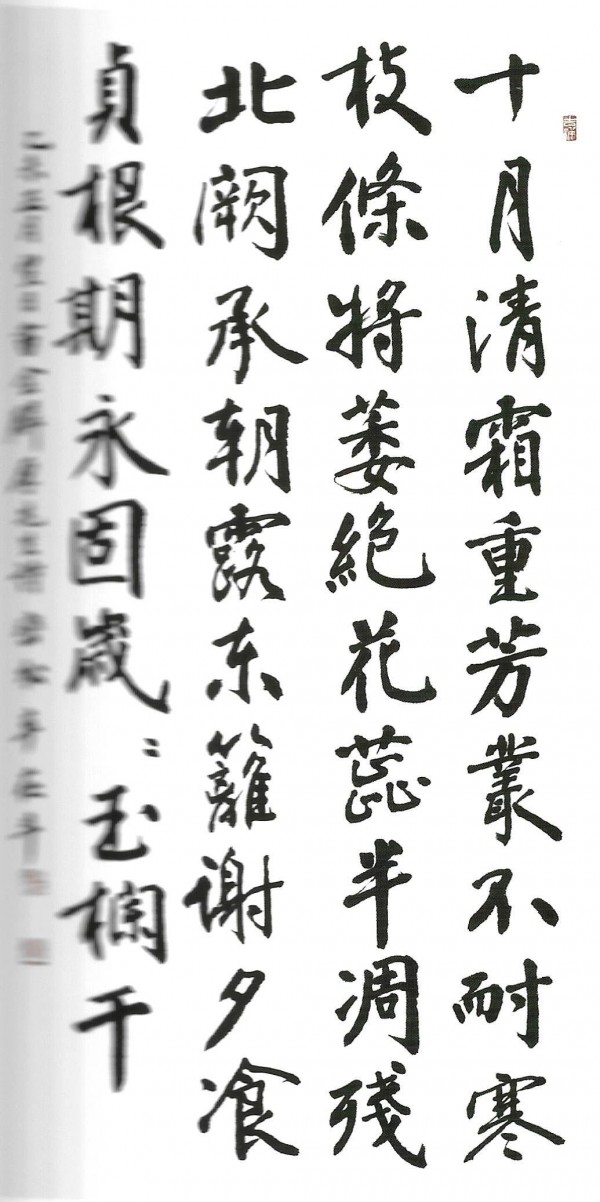 十月清霜重芳叢不耐寒
枝條將萎絕花蕋半凋殘
北闕承朝露东籬谢夕飡
貞根期永固歲〻玉欄干